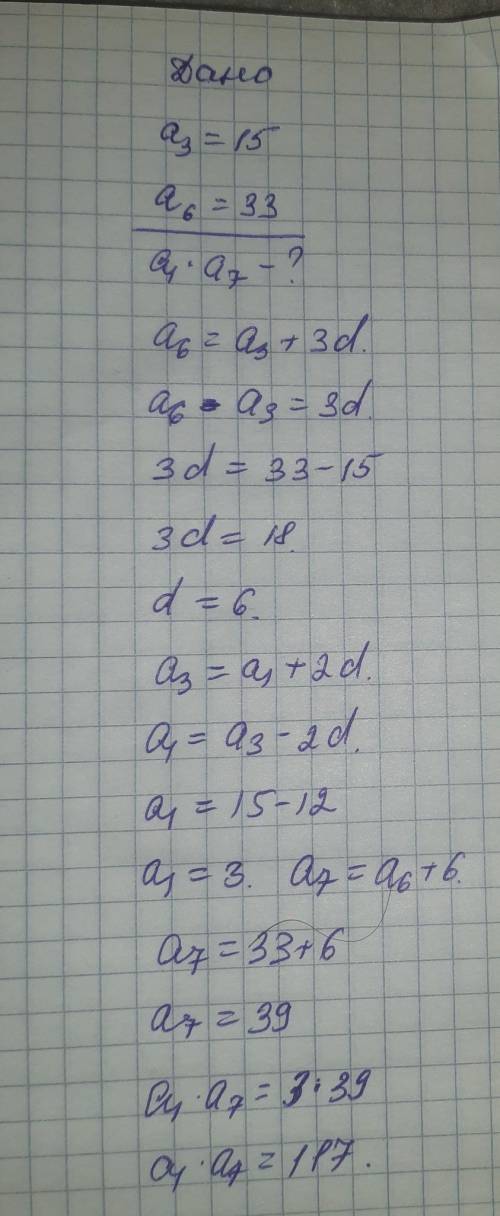 Дано
a₃ = 15
a₆ = 33
a₁ · a₇ - ?
a₆ = a₃ + 3d.
a₆ - a₃ = 3d.
3d = 33 - 15
3d = 18.
d = 6.
a₃ = a₁ + 2d.
a₁ = a₃ - 2d.
a₁ = 15 - 12
a₁ = 3. a₇ = a₆ + 6.
a₇ = 33 + 6
a₇ = 39
a₁ · a₇ = 3 · 39
a₁ · a₇ = 117.